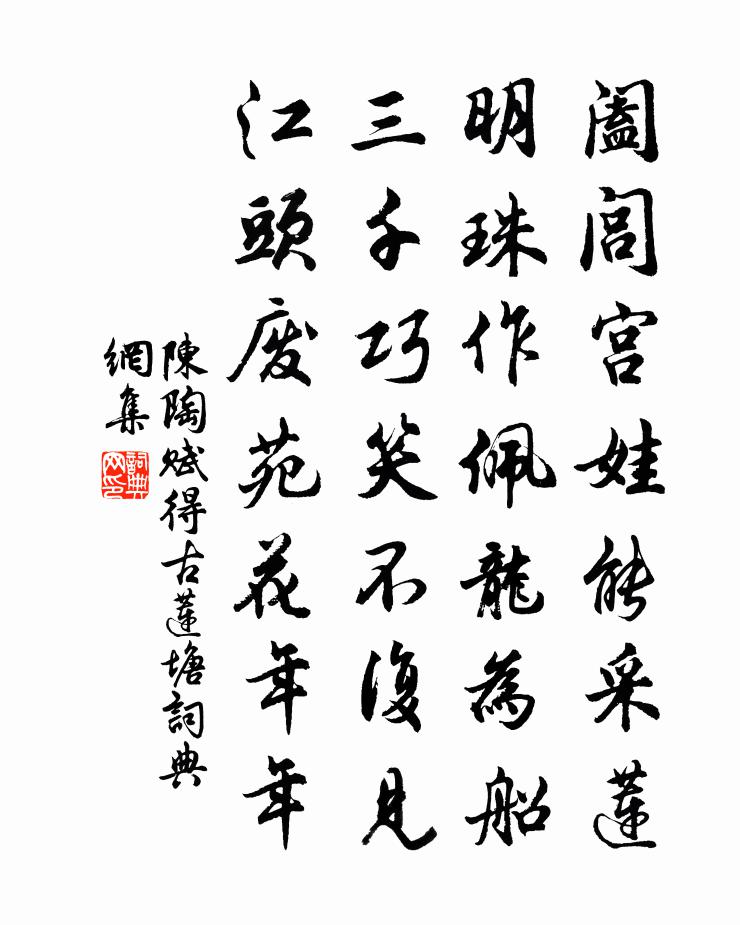 闔閭宮娃能采蓮
明珠作佩龍為船
三千巧笑不復見
江頭廢苑花年年
陳陶賦得古蓮塘詞典
網集
詞典
网印